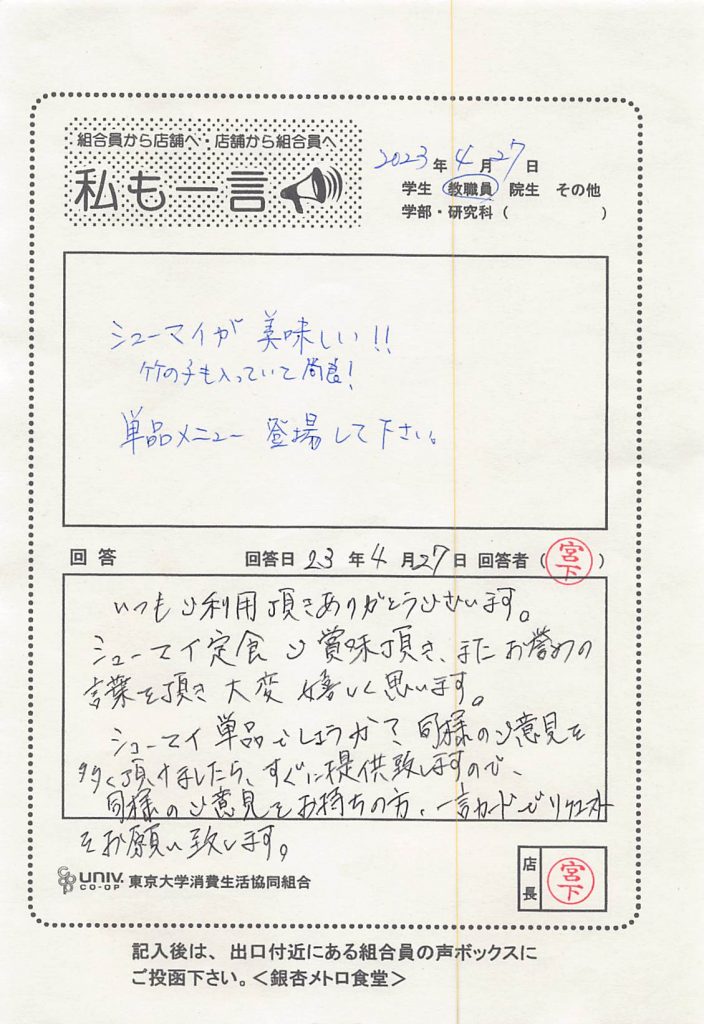 組合員から店舗へ・店舗から組合員へ
私も一言
2023年4月27日
学生 教職員 院生 その他
学部・研究科（ ）
シューマイが 美味しい!!
竹の子も入っていて尚良!
単品メニュー 登場して下さい。
回答 回答日 23年4月27日 回答者（宮下）
いつもご利用頂きありがとうございます。
シューマイ定食ご賞味頂き、またお誉めの
言葉を頂き大変嬉しく思います。
シューマイ単品でしょうか? 同様のご意見を
多く頂けましたら、すぐに提供致しますので、
同様のご意見をお持ちの方、一言カードでリクエスト
をお願い致します。
UNIV. CO-OP 東京大学消費生活協同組合
店長 宮下
記入後は、出口付近にある組合員の声ボックスに
ご投函下さい。＜銀杏メトロ食堂＞